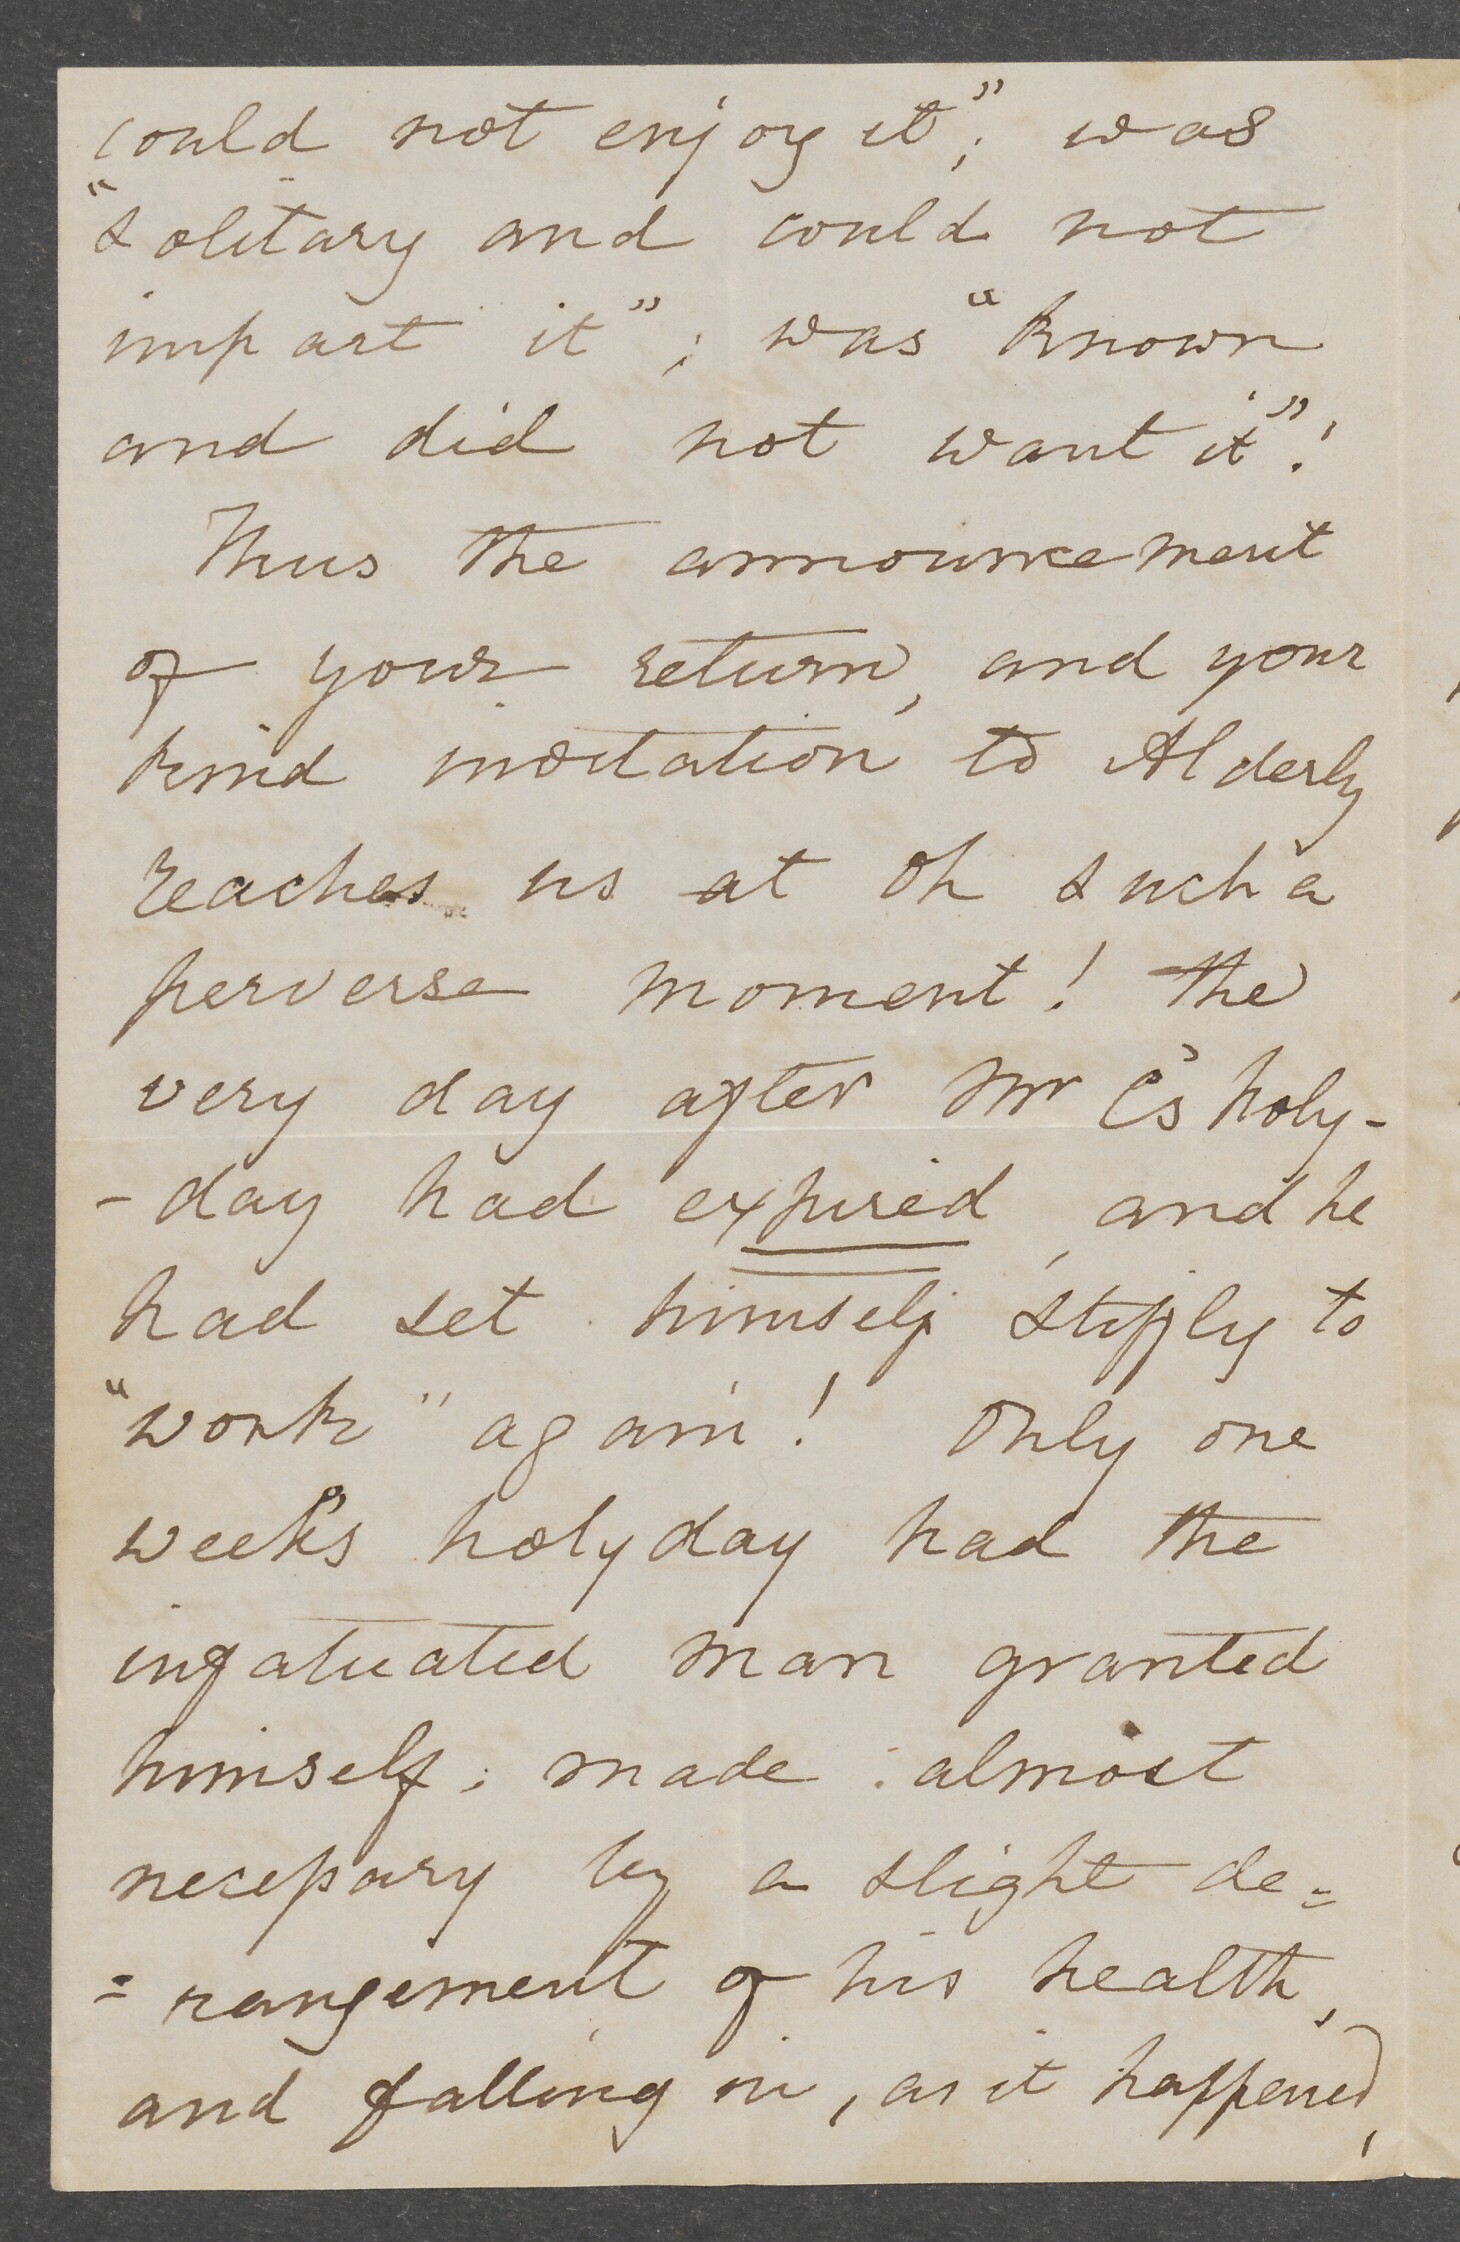 could not enjoy it"; was
"solitary and could not
impart it"; was "known
and did not want it"!
Thus the announcement
of your return, and your
kind invitation to Alderly
reaches us at oh such a
perverse moment! the
very day after Mr C's holy-
-day had expired, and he
had set himself stiffly to
"work" again! Only one
week's holyday had the
infatuated man granted
himself; made almost
necessary by a slight de=
=rangement of his health,
and falling in, as it happened,